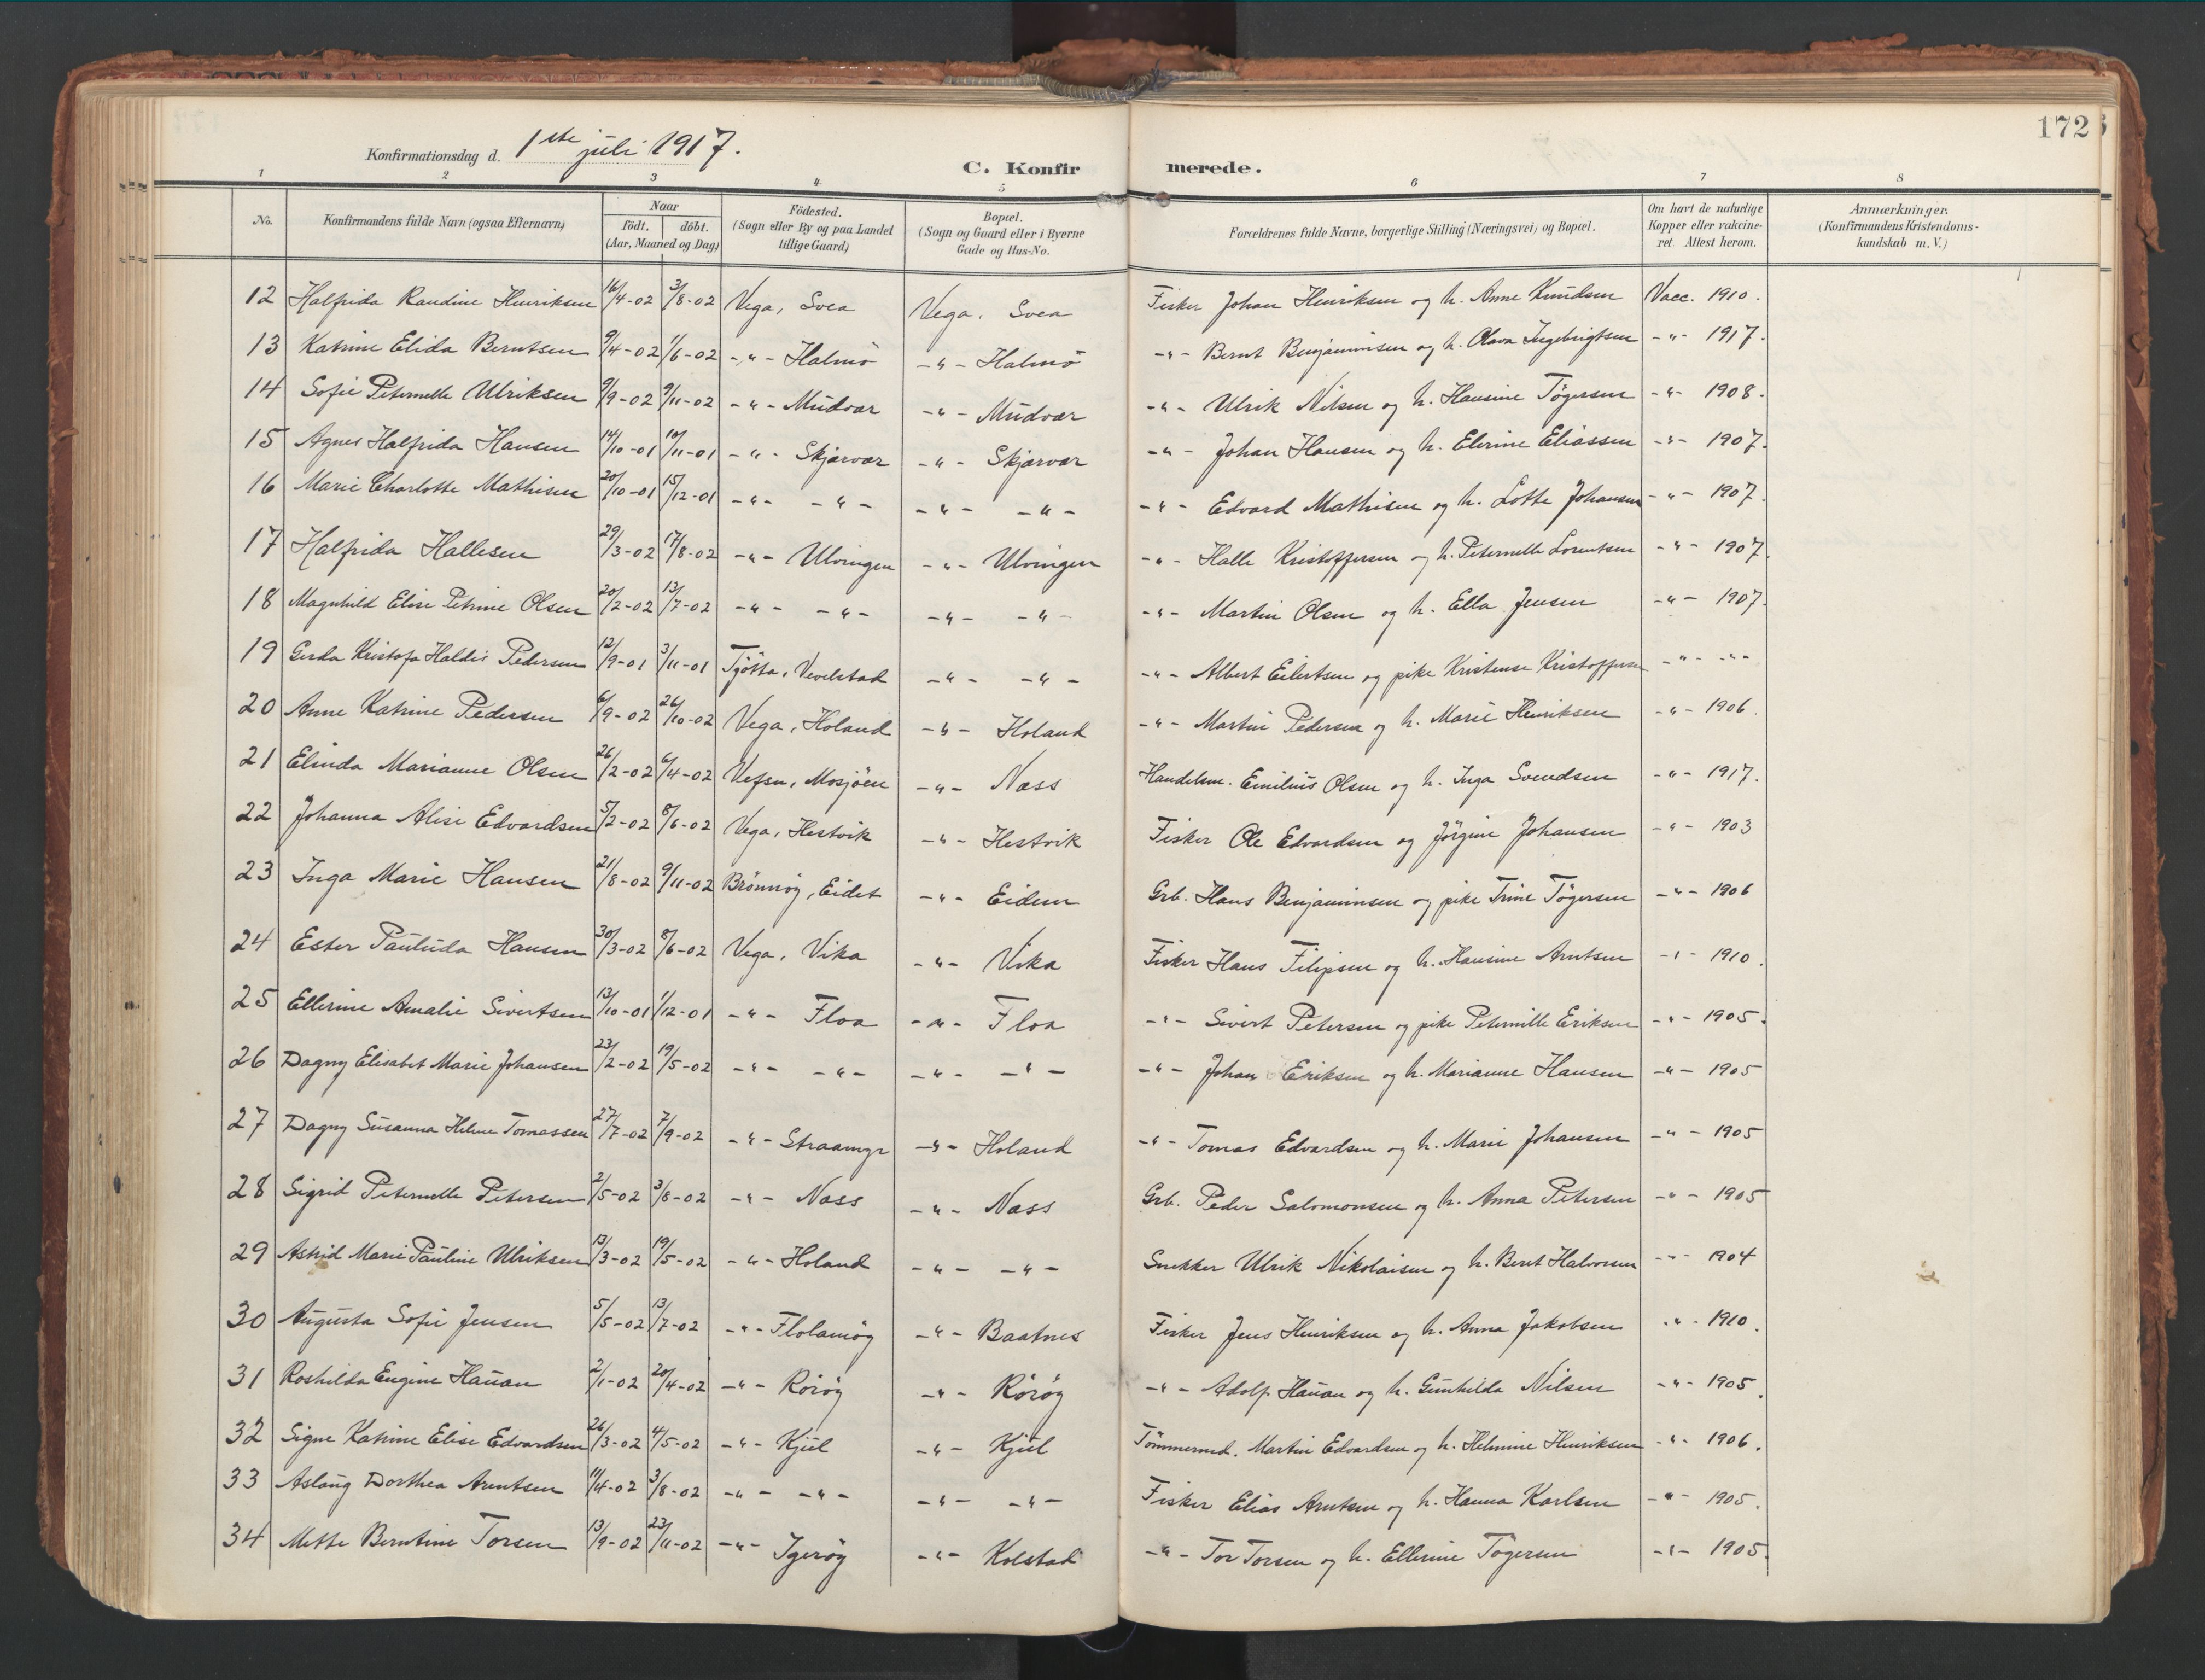 172
Konfirmationsdag d. 1ste juli 1917.
C. Konfirmerede.
1 2 3 4 5 6 7 8
No. Konfirmandens fulde Navn (ogsaa Efternavn) Naar födt. döbt. (Aar, Maaned og Dag) Födested. (Sogn eller By og paa Landet tillige Gaard) Bopæl. (Sogn og Gaard eller i Byerne Gade og Hus-No. Forældrenes fulde Navne, borgerlige Stilling (Næringsvei) og Bopæl. Om havt de naturlige Kopper eller vakcineret. Attest herom. Anmærkninger. (Konfirmandens Kristendomskundskab m. V.)
12 Halfrida Randine Henriksen 16/4-02 3/8-02 Vega, Svea Vega, Svea Fisker Johan Henriksen og h. Anne Knudsen Vacc. 1910.
13 Katrine Elida Berntsen 9/4-02 1/6-02 -"- Halmö -"- Halmö -"- Bernt Benjaminsen og h. Olava Ingebrigtsen -"- 1917.
14 Sofie Peternelle Ulriksen 9/9-02 9/11-02 -"- Mudvær -"- Mudvær -"- Ulrik Nilsen og h. Hansine Tögersen -"- 1908.
15 Agnes Halfrida Hansen 14/10-01 10/11-01 -"- Skjærvær -"- Skjærvær -"- Johan Hansen og h. Elerine Eliassen -"- 1907.
16 Marie Charlotte Mathisen 20/10-01 15/12-01 -"- -"- -"- -"- -"- Edvard Mathisen og h. Lotte Johansen -"- 1907.
17 Halfrida Hallesen 29/3-02 17/8-02 -"- Ulvingen -"- Ulvingen -"- Halle Kristoffersen og h. Peternelle Lorentsen -"- 1907.
18 Magnhild Elise Petrine Olsen 20/2-02 13/7-02 -"- -"- -"- -"- -"- Martin Olsen og h. Ella Jensen -"- 1907.
19 Gerda Kristofa Haldis Pedersen 12/9-01 3/11-01 Tjötta, Vevelstad -"- -"- -"- Albert Eilertsen og pike Kristense Kristoffersen -"- -"-
20 Anne Katrine Pedersen 6/9-02 26/10-02 Vega, Holand -"- Holand -"- Martin Pedersen og h. Marie Henriksen -"- 1906.
21 Elinda Marianne Olsen 26/2-02 6/4-02 Vefsn, Mosjöen -"- Næss Handelsm. Emilius Olsen og h. Inga Svendsen -"- 1917.
22 Johanna Alise Edvardsen 5/2-02 8/6-02 Vega, Hestvik -"- Hestvik Fisker Ole Edvardsen og Jörgine Johansen -"- 1903
23 Inga Marie Hansen 21/8-02 9/11-02 Brönnöy, Eidet -"- Eidem Grb. Hans Benjaminsen og pike Trine Tögersen -"- 1906
24 Ester Paulida Hansen 30/3-02 8/6-02 Vega, Vika -"- Vika Fisker Hans Filipsen og h. Hansine Arntsen -"- 1910.
25 Ellerine Amalie Sivertsen 13/10-01 1/12-01 -"- Floa -"- Floa -"- Sivert Petersen og pike Peternille Eriksen -"- 1905.
26 Dagny Elisabet Marie Johansen 23/2-02 19/5-02 -"- -"- -"- -"- -"- Johan Eriksen og h. Marianne Hansen -"- 1905
27 Dagny Susanna Helene Tomassen 27/7-02 7/9-02 -"- Straamyr -"- Holand -"- Tomas Edvardsen og h. Marie Johansen -"- 1905
28 Sigrid Peternelle Petersen 2/5-02 3/8-02 -"- Næss -"- Næss Grb. Peder Salomonsen og h. Anna Petersen -"- 1905
29 Astrid Marie Pauline Ulriksen 13/3-02 19/5-02 -"- Holand -"- -"- Snekker Ulrik Nikolaisen og h. Beret Halvorsen -"- 1904
30 Augusta Sofie Jensen 5/5-02 13/7-02 -"- -"- Baatnes Fisker Jens Henriksen og h. Anna Jakobsen -"- 1910.
31 Roshilda Eugine Hauan 2/1-02 20/4-02 -"- Röröy -"- Röröy -"- Adolf Hauan og h. Gunhilda Nilsen -"- 1905.
32 Signe Katrine Elise Edvardsen 26/3-02 4/5-02 -"- Kjul -"- Kjul Tömmermd. Martin Edvardsen og h. Helmine Henriksen -"- 1906.
33 Aslaug Dorthea Arentsen 11/4-02 3/8-02 -"- -"- -"- -"- Fisker Elias Arntsen og h. Hanna Karlsen -"- 1905.
34 Mette Berntine Torsen 13/9-02 23/11-02 -"- Igeröy -"- Kolstad -"- Tor Torsen og h. Ellerine Tögersen -"- 1905.